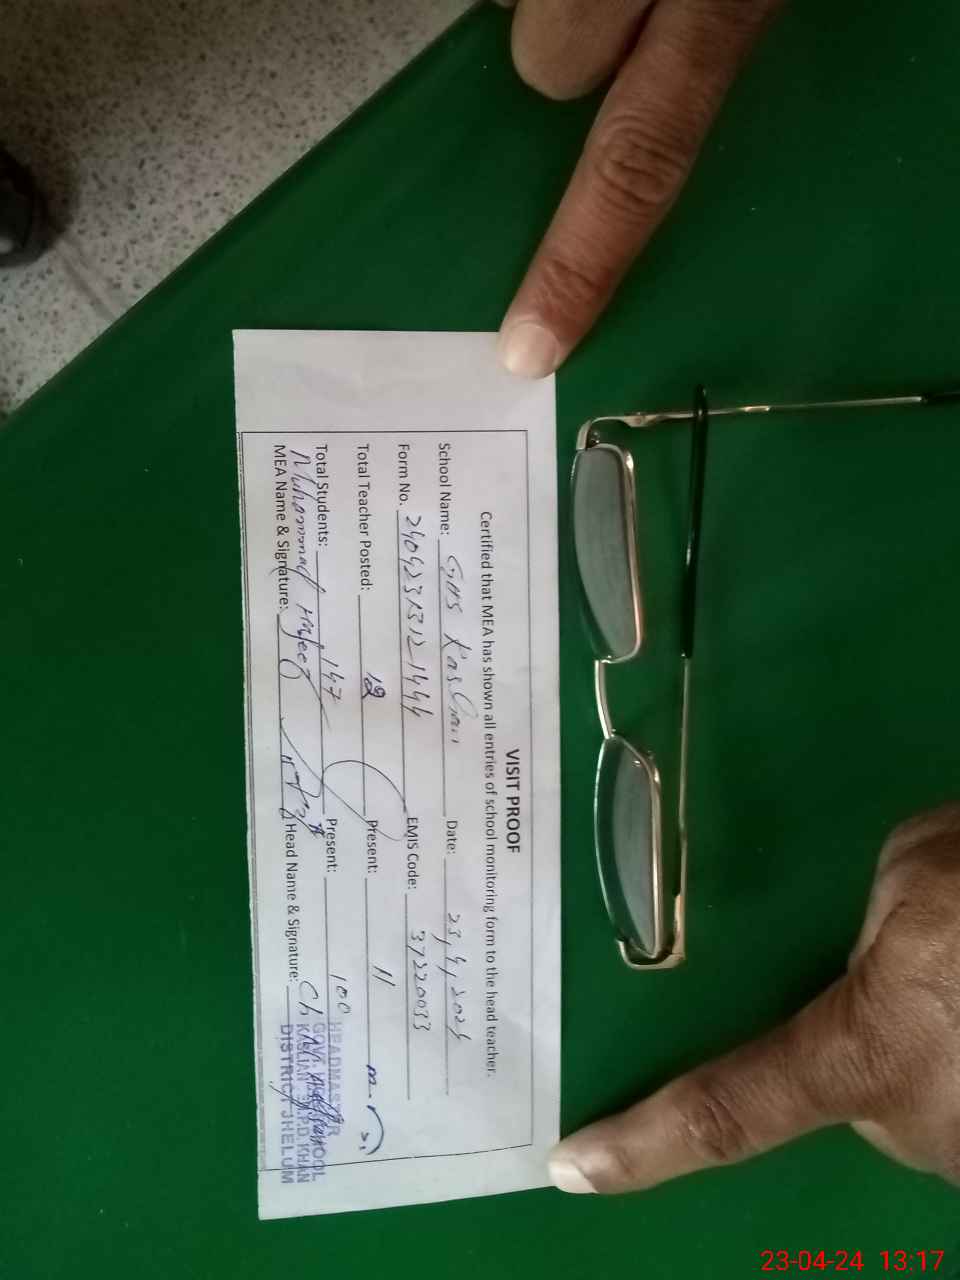 VISIT PROOF
Certified that MEA has shown all entries of school monitoring form to the head teacher.
School Name: GHS Kaslian Date: 23,4,2024
Form No. EMIS Code: 37220033
Total Teacher Posted: 12 Present: 11
Total Students: 147 Present: 100
MEA Name & Signature: Muhammad Head Name & Signature: Ch
HEADMASTER
GOVT. SCHOOL
KASLIAN P.D. KHAN
DISTRICT JHELUM
23-04-24 13:17